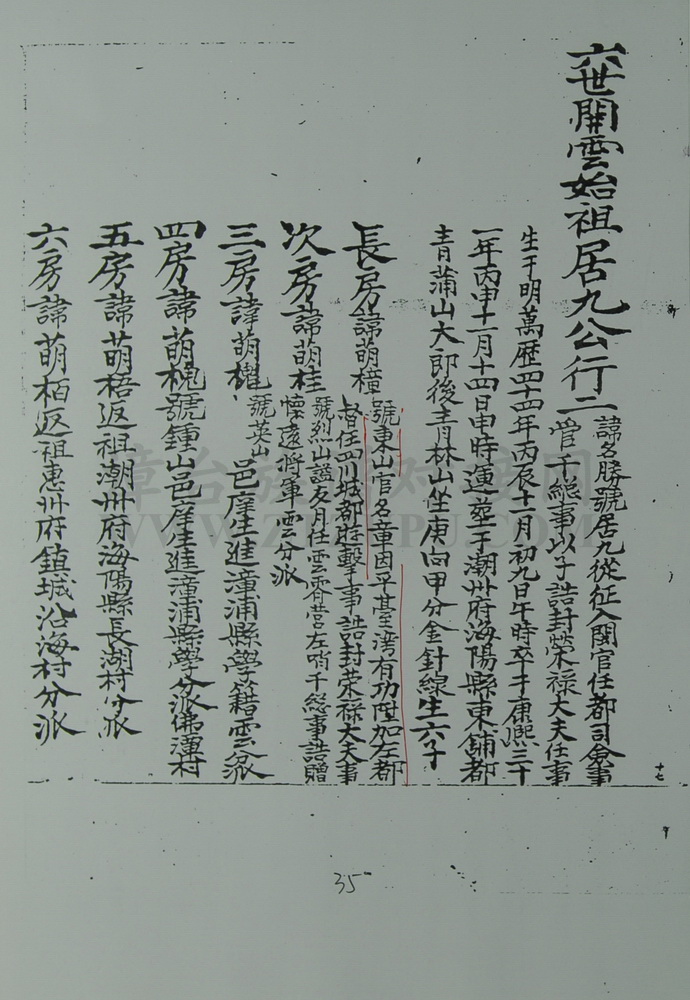 六世開雲始祖居九公行二
諱名勝號居九從征入閩官任都司僉事
管千總事以子誥封榮祿大夫任事
生于明萬歷四十四年丙辰十一月初九日午時卒于康熙三十
一年丙申十一月十四日申時運塟于潮州府海陽縣東舖都
青蒲山大郎後青林山坐庚向甲分金針線生六子
長房諱萌樟
號東山官名童因平臺湾有功陞加左都
督任四川城都遊擊事誥封荣祿大夫事
次房諱萌桂
號烈山謚友月任雲霄营左哨千総事誥贈
懷遠將軍雲分派
三房諱萌櫳
號英山
邑庠生進漳浦縣學籍雲派
四房諱萌槐號鍾山邑庠生進漳浦縣學分派佛潭村
五房諱萌梧返祖潮州府海陽縣長湖村分派
六房諱萌栢返祖惠州府鎮城沿海村分派
十七
35
WWW.Z
PU.COM